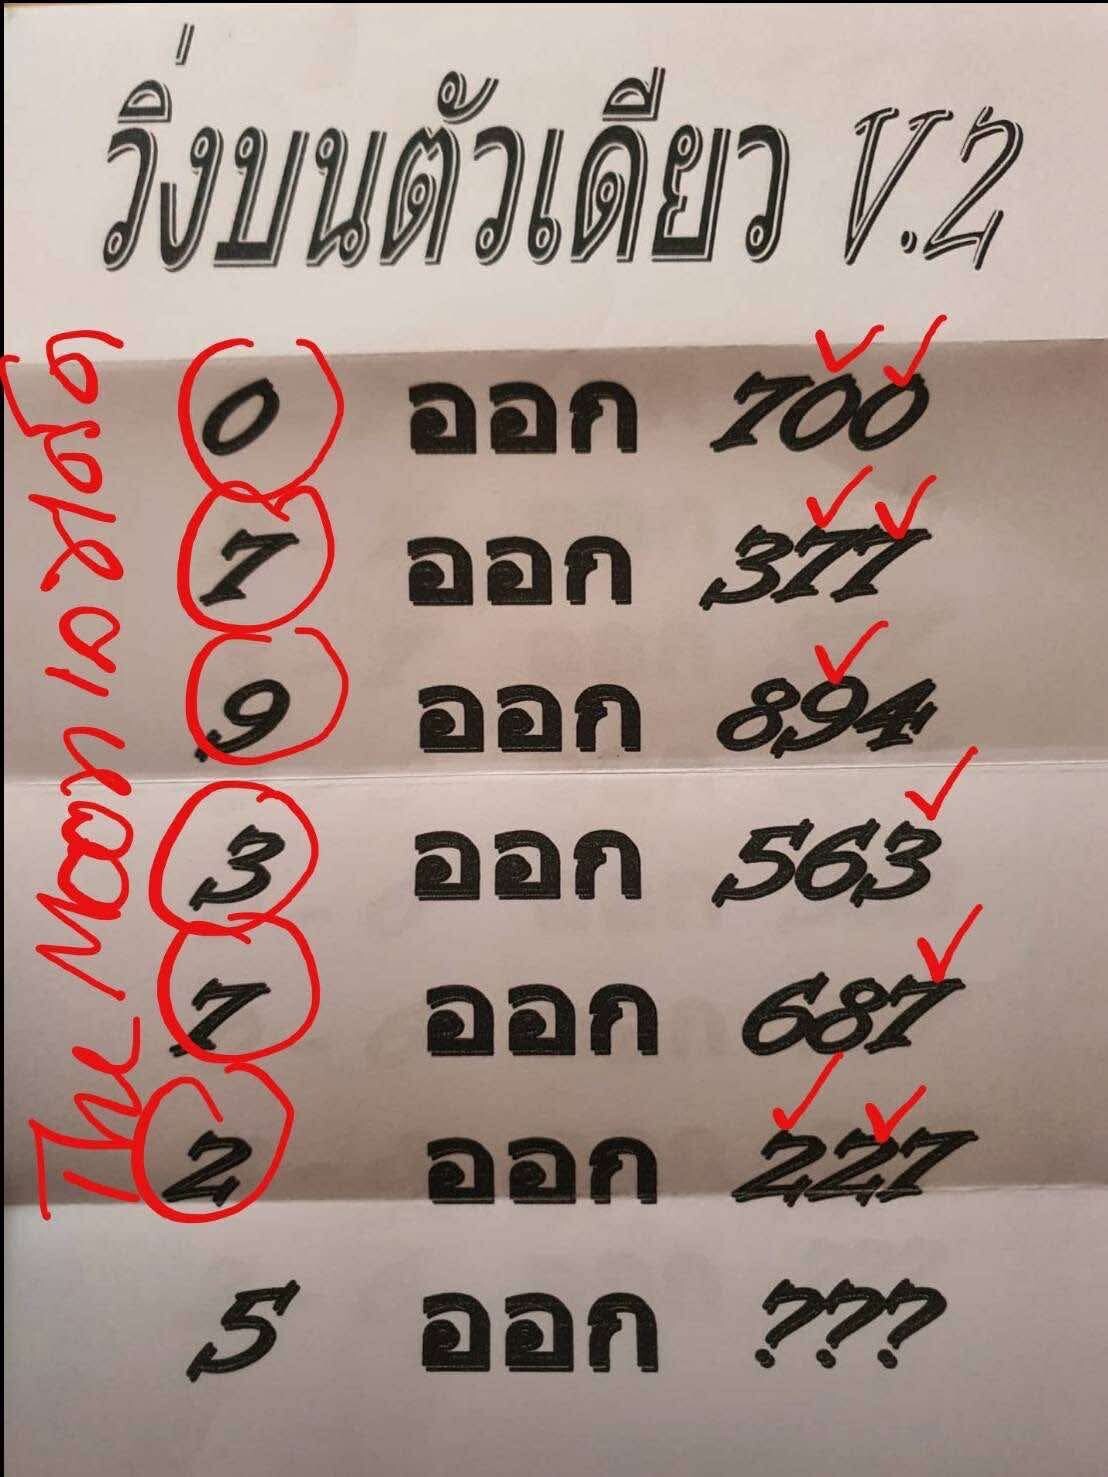 วิ่งบนตัวเดียว V.2
0 ออก 700
7 ออก 377
9 ออก 894
3 ออก 563
7 ออก 687
2 ออก 227
5 ออก ???
The Moon